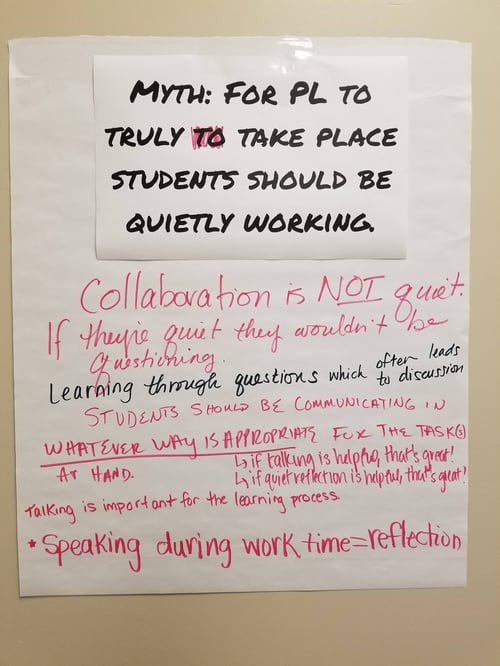 MYTH: FOR PL TO
TRULY TO TAKE PLACE
STUDENTS SHOULD BE
QUIETLY WORKING.
Collaboration is NOT quiet.
If they're quiet they wouldn't be
questioning.
Learning through questions which often leads
to discussion
STUDENTS SHOULD BE COMMUNICATING IN
WHATEVER WAY IS APPROPRIATE FOR THE TASK(S)
AT HAND.
↳ if talking is helpful, that's great!
↳ if quiet reflection is helpful, that's great!
Talking is important for the learning process.
* Speaking during work time = reflection